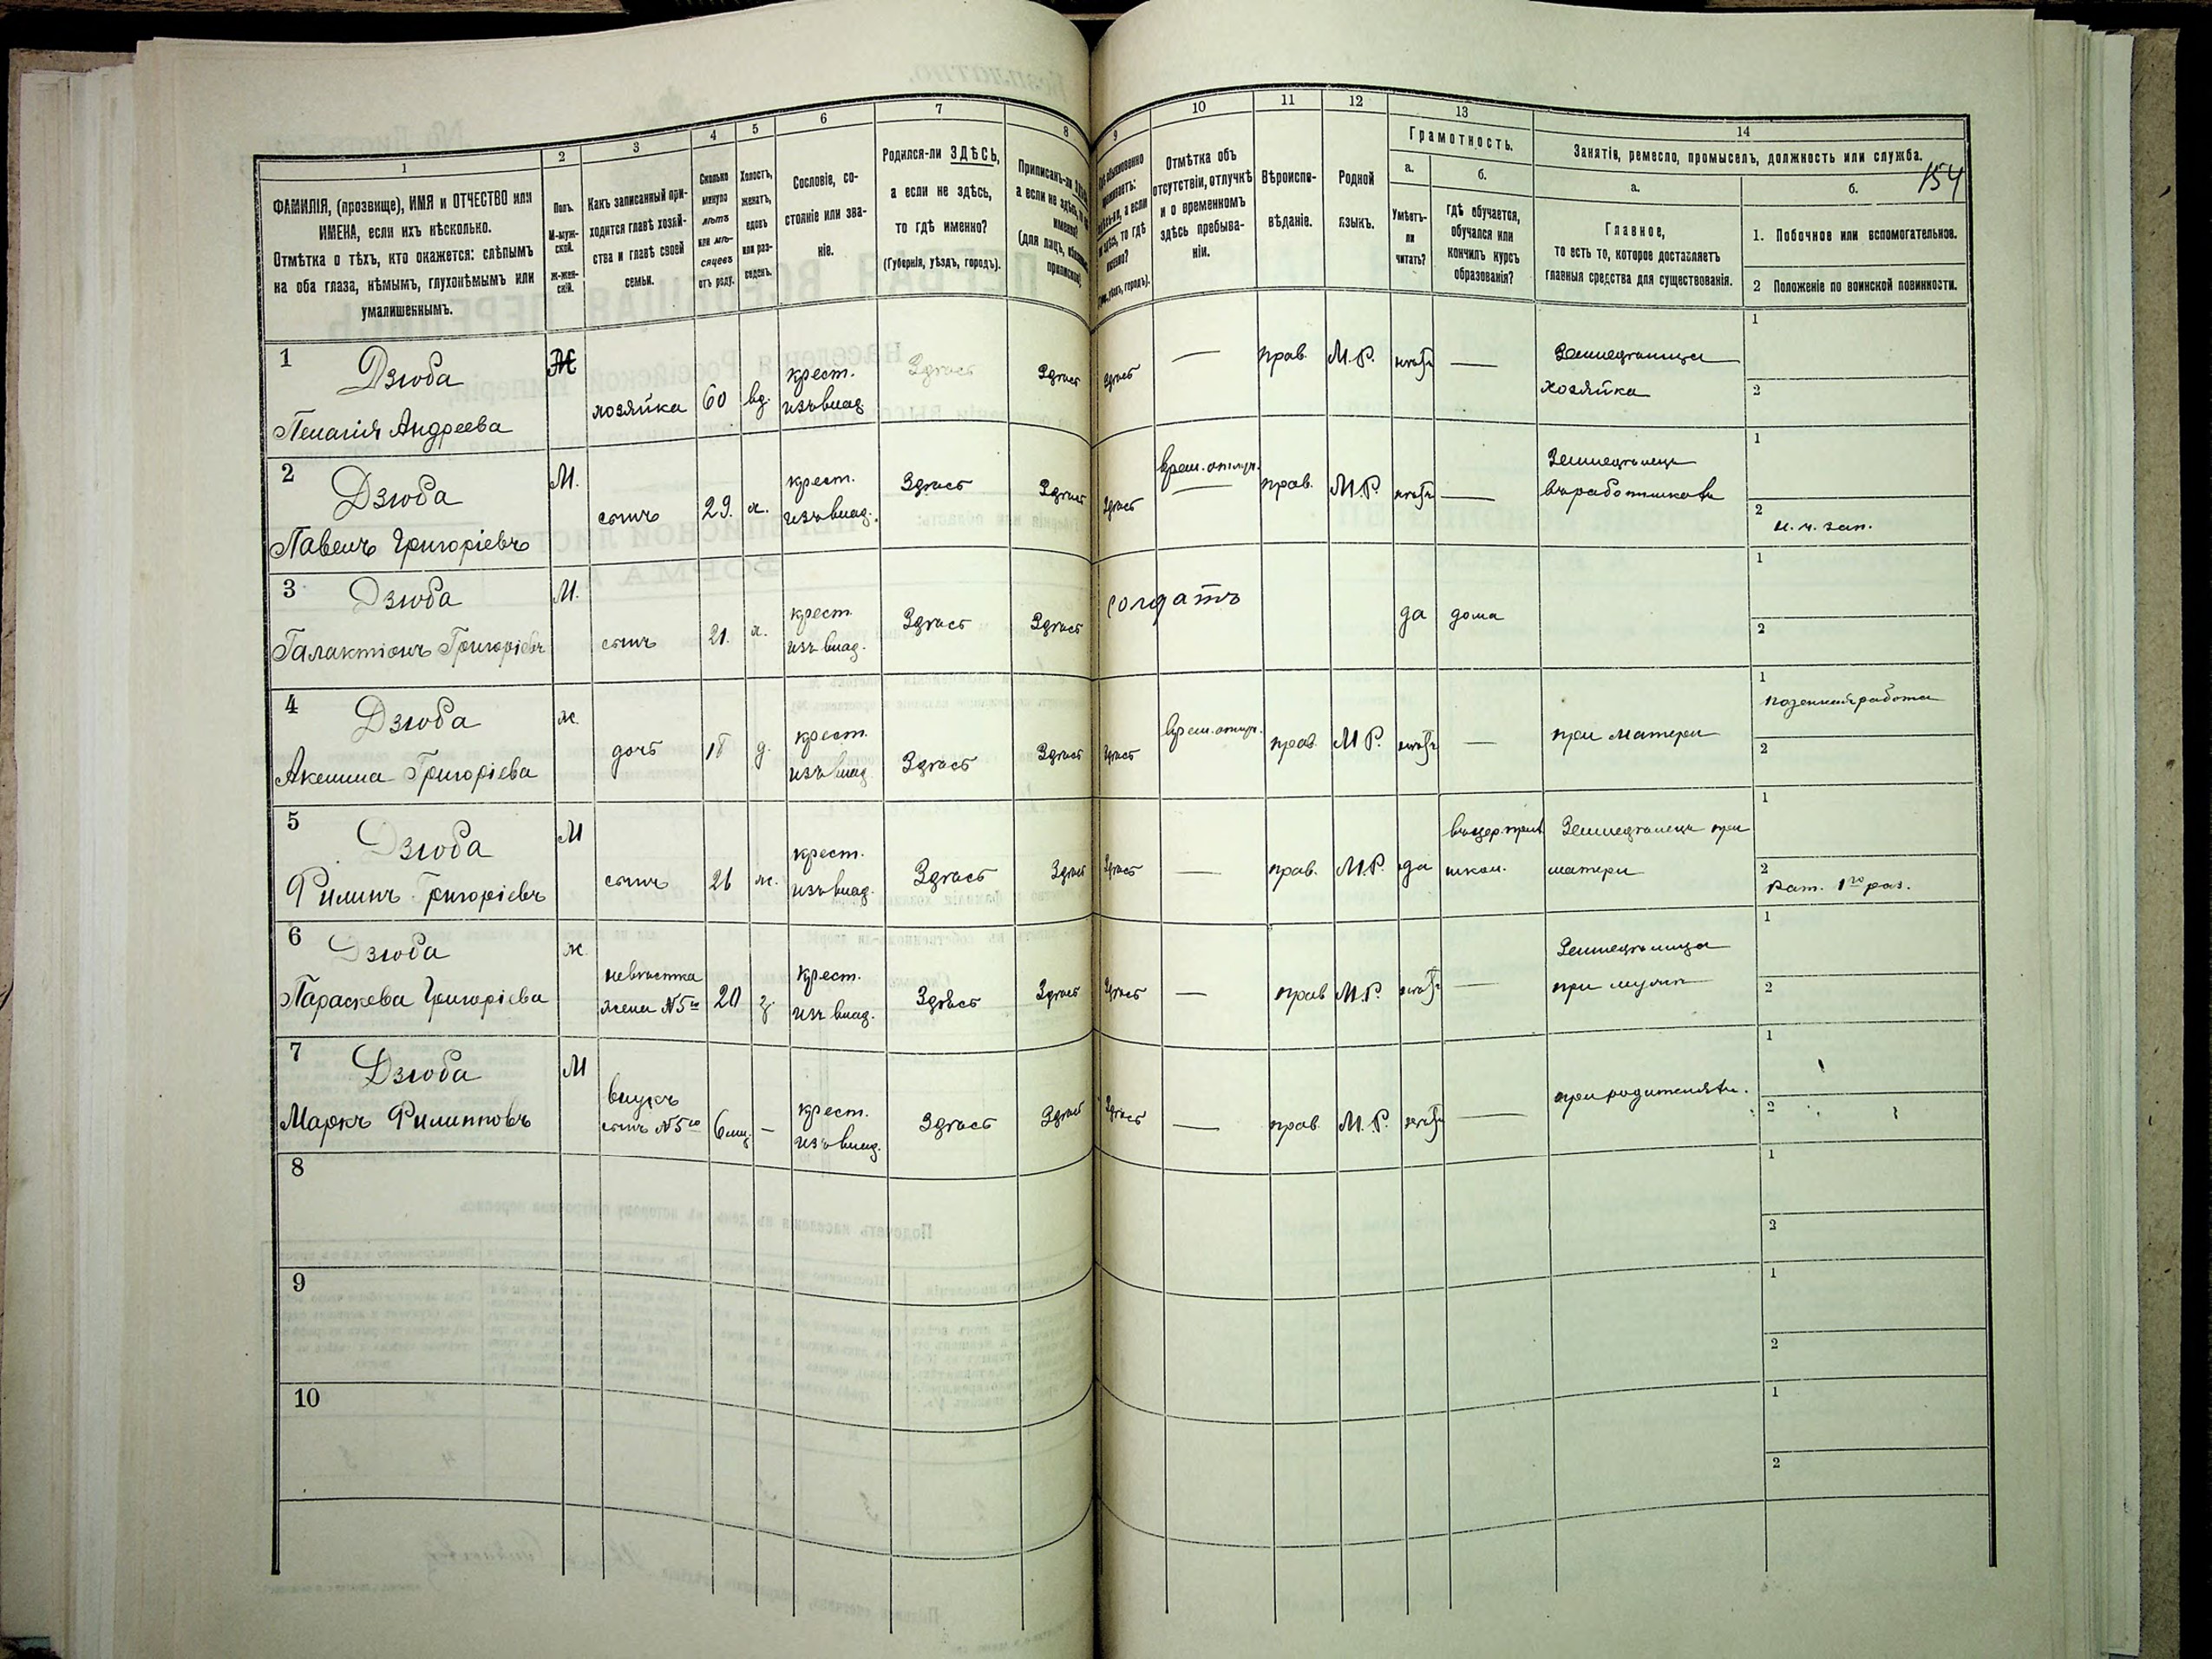 1
2
3
4
5
6
7
8
ФАМИЛІЯ, (прозвище), ИМЯ и ОТЧЕСТВО или
ИМЕНА, если ихъ нѣсколько.
Отмѣтка о тѣхъ, кто окажется: слѣпымъ
на оба глаза, нѣмымъ, глухонѣмымъ или
умалишеннымъ.
Полъ.
М-муж-
ской.
Ж-жен-
скій.
Какъ записанный при-
ходится главѣ хозяй-
ства и главѣ своей
семьи.
Сколько
минуло
лѣтъ
или мѣ-
сяцевъ
отъ роду.
Холостъ,
женатъ,
вдовъ
или раз-
веденъ.
Сословіе, со-
стояніе или зва-
ніе.
Родился-ли ЗДѢСЬ,
а если не здѣсь,
то гдѣ именно?
(Губернія, уѣздъ, городъ).
Приписанъ-ли
а если не здѣсь,
9
10
11
12
13
14
Отмѣтка объ
отсутствіи, отлучкѣ
и о временномъ
здѣсь пребыва-
ніи.
Вѣроиспо-
вѣданіе.
Родной
языкъ.
Грамотность.
а.
б.
Умѣетъ-
ли
читать?
гдѣ обучается,
обучался или
кончилъ курсъ
образованія?
Занятіе, ремесло, промыселъ, должность или служба.
154
а.
б.
Главное,
то есть то, которое доставляетъ
главныя средства для существованія.
1. Побочное или вспомогательное.
2 Положеніе по воинской повинности.
1 Дзюба
Пелагія Андреева
Ж
хозяйка
60
вд.
крест.
изъ влад.
Здѣсь
Здѣсь
Здѣсь
—
прав.
М.Р.
нѣтъ
—
Земледѣлица
хозяйка
1
2
2 Дзюба
Павелъ Григоріевъ
М.
сынъ
29.
х.
крест.
изъ влад.
Здѣсь
Здѣсь
Здѣсь
врем. отлуч.
прав.
М.Р.
нѣтъ
—
Земледѣлецъ
въ работникахъ
1
2
3 Дзюба
Галактіонъ Григоріевъ
М.
сынъ
21.
х.
крест.
изъ влад.
Здѣсь
Здѣсь
солдатъ
да
дома
1
2
4 Дзюба
Акелина Григоріева
ж.
дочь
18
д.
крест.
изъ влад.
Здѣсь
Здѣсь
Здѣсь
врем. отлуч.
прав.
М.Р.
нѣтъ
—
при матери
1
поденная работа
2
5 Дзюба
Филипъ Григоріевъ
М
сынъ
26
ж.
крест.
изъ влад.
Здѣсь
Здѣсь
Здѣсь
—
прав.
М.Р.
да
въ цер. прих.
школ.
Земледѣлецъ при
матери
1
2
Рат. 1го раз.
6 Дзюба
Параскева Григоріева
ж
невѣстка
жена №5го
20
з.
крест.
изъ влад.
Здѣсь
Здѣсь
Здѣсь
—
прав
М.Р.
нѣтъ
—
Земледѣлица
при мужѣ
1
2
7 Дзюба
Маркъ Филипповъ
М
внукъ
сынъ №5го
6 мц.
—
крест.
изъ влад.
Здѣсь
Здѣсь
Здѣсь
—
прав.
М.Р.
нѣтъ
—
при родителяхъ.
1
2
8
1
2
9
1
2
10
1
2